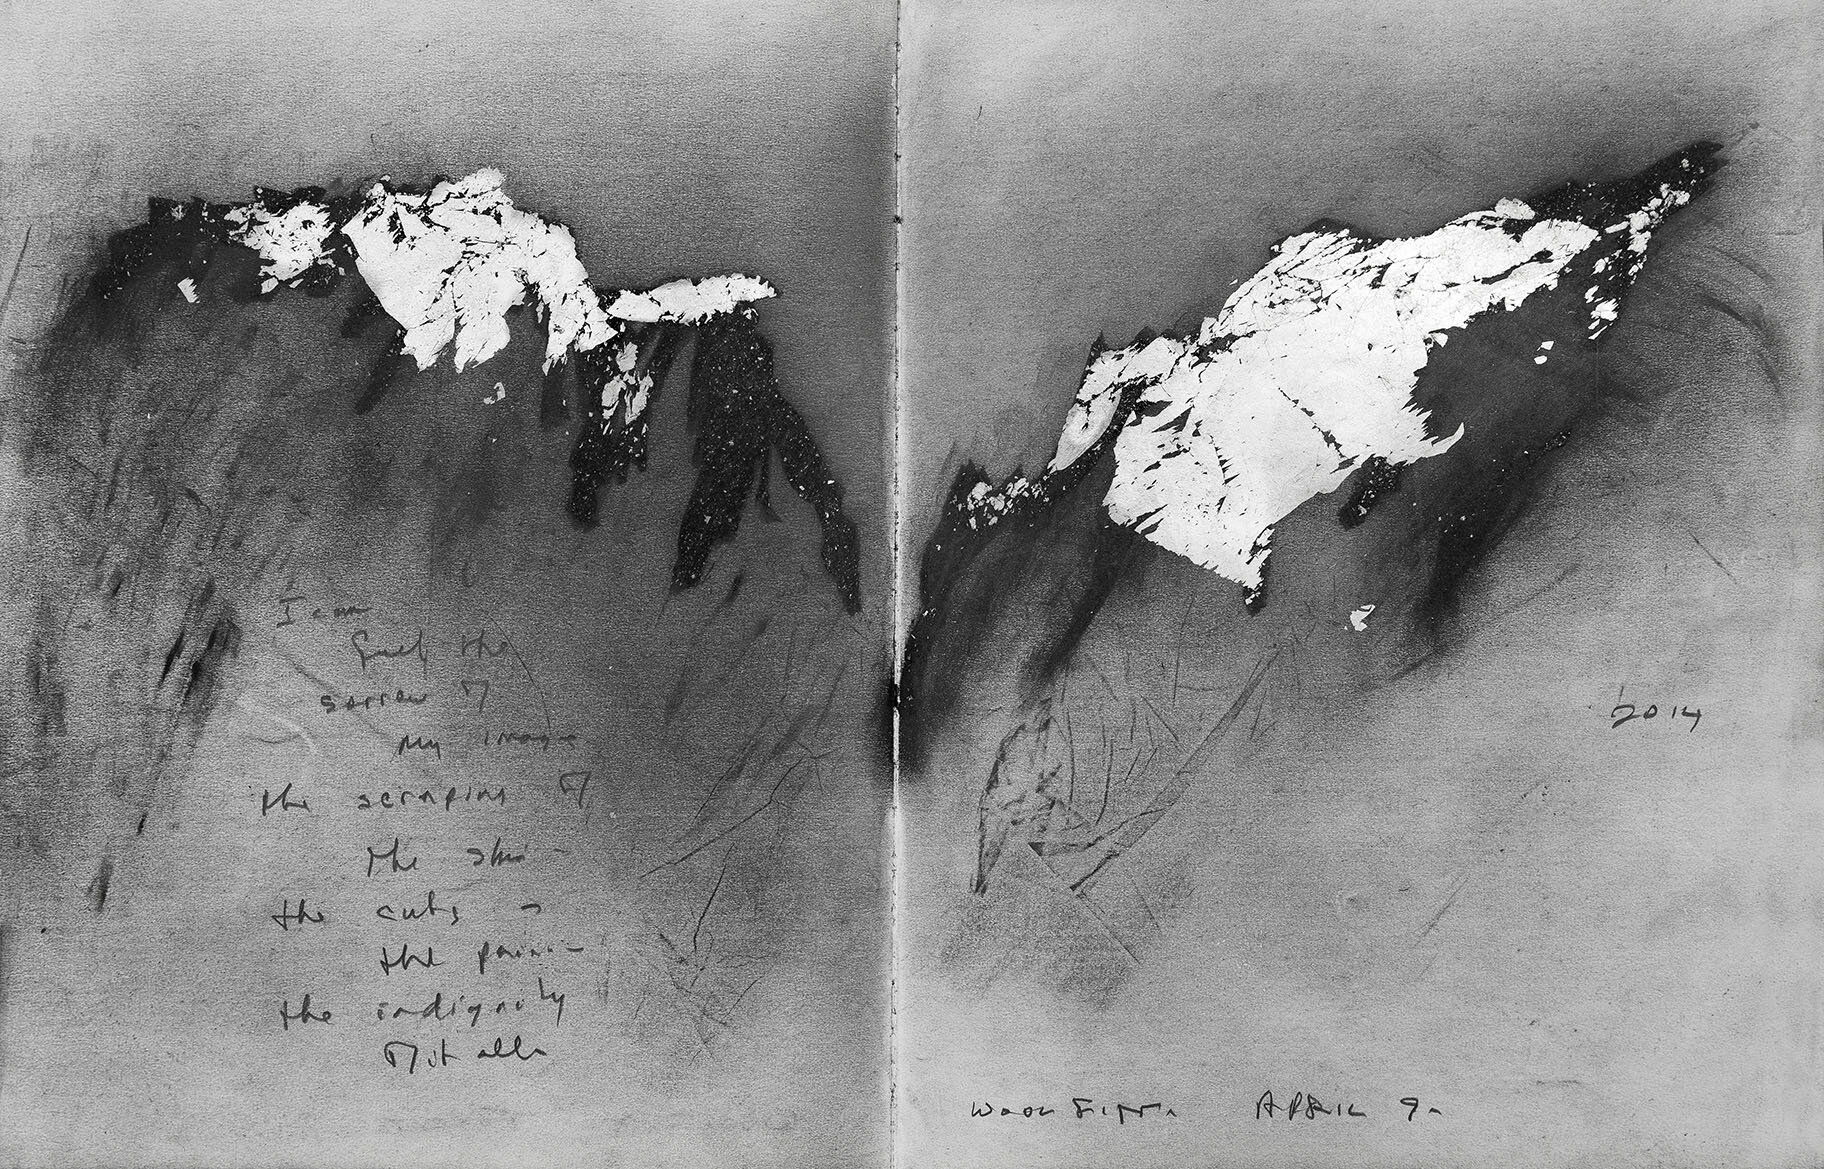 I can
feel the
sorrow of
my image
the scraping of
the skin –
the cuts –
the pain –
the indignity
of it all.
'2014
April 9.